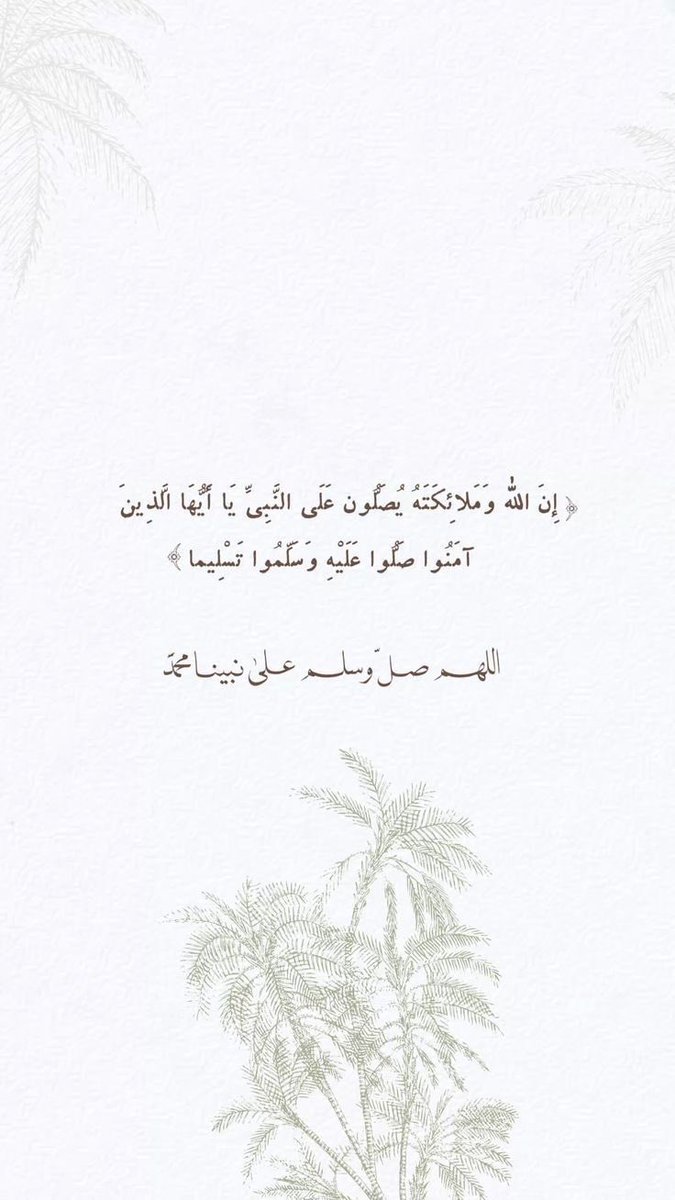 ﴿إِنَ الله وَمَلائِكَتَهُ يُصَلُّون عَلَى النَّبِىِّ يَا أَيُّهَا الَّذِينَ
آمَنُوا صَلُّوا عَلَيْهِ وَسَلِّمُوا تَسْلِيما﴾
اللهم صلّ وسلم على نبينا محمد